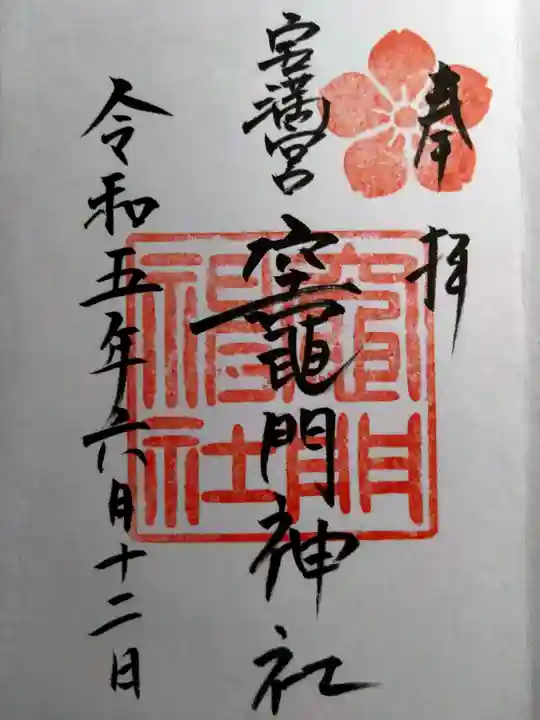 奉拝
宝満宮
竈門神社
令和五年六月十二日
竈門
神社